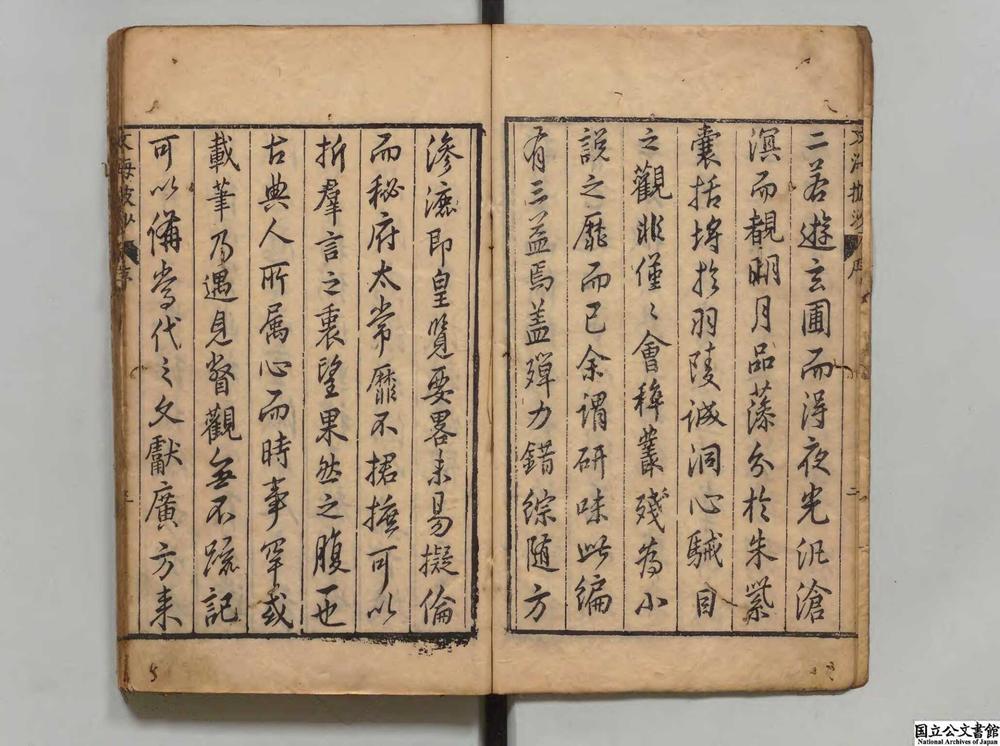 二若遊玄圃而得夜光汎滄
溟而覩明月品藻分於朱紫
囊括埒於羽陵誠洞心駴目
之觀非僅〻會稡叢殘為小
說之靡而已余謂研味此編
有三益焉蓋殫力錯綜隨方
滲漉即皇覽要畧未易擬倫
而秘府太常靡不捃摭可以
折羣言之衷望果然之腹也
古典人所属心而時事罕或
載筆乃遇見督觀無不疏記
可以備當代之文獻廣方来
文海披沙 序
二
文海披沙 序
三
国立公文書館
National Archives of Japan